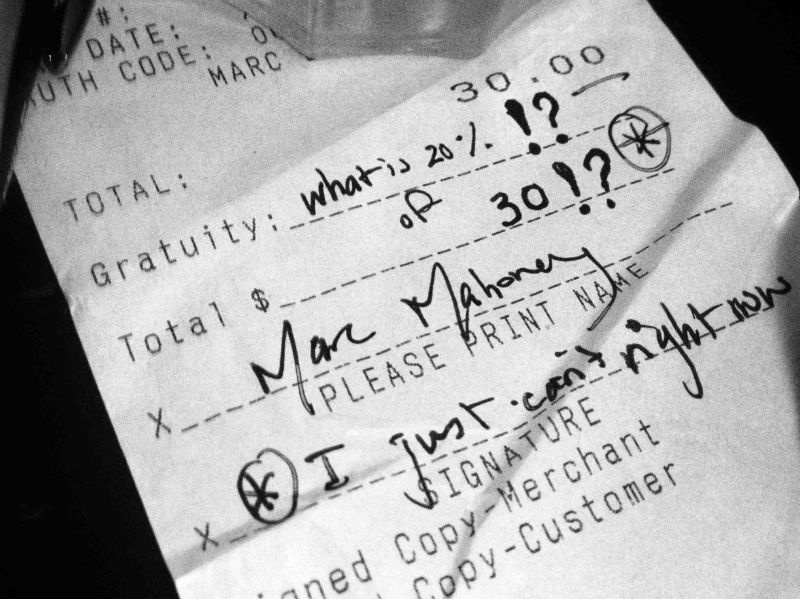 #:
DATE:
AUTH CODE:
MARC
30.00
TOTAL:
Gratuity: what is 20% !?
of 30!? *
Total $
X Marc Mahoney
PLEASE PRINT NAME
X * I just can't right now
SIGNATURE
igned Copy-Merchant
Copy-Customer